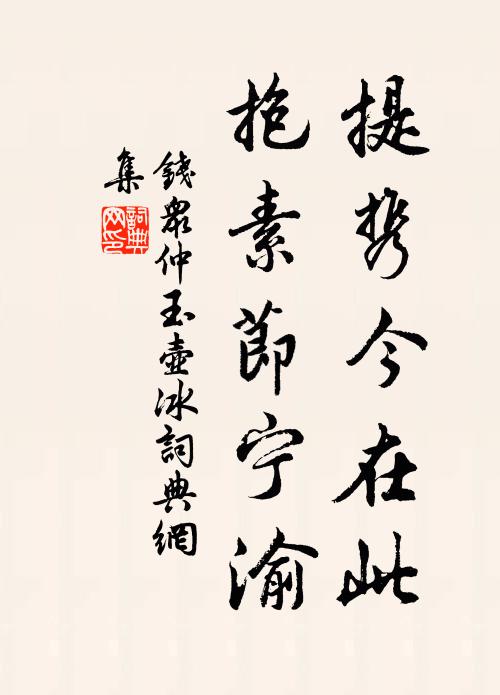 提携今在此
抱素節宁渝
錢眾仲玉壺冰詞典網
集
詞典网印